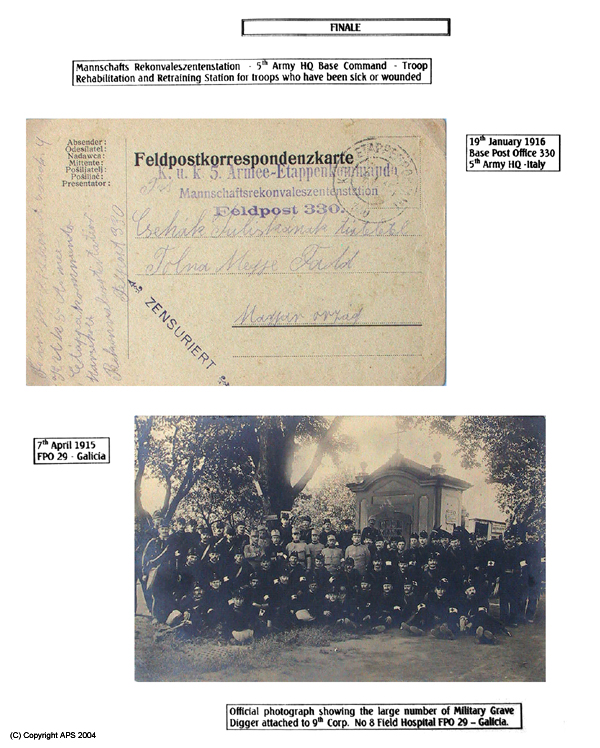 FINALE
Mannschafts Rekonvaleszentenstation - 5th Army HQ Base Command - Troop
Rehabilitation and Retraining Station for troops who have been sick or wounded
19th January 1916
Base Post Office 330
5th Army HQ -Italy
Absender:
Odesílatel:
Nadawca:
Mittente:
Pošiljatelj:
Pošilač:
Presentator:
Feldpostkorrespondenzkarte
K. u. k. 5. Armee-Etappenkommando
Mannschaftsrekonvaleszentenstation
Feldpost 330.
Csehák Juliskának
Tolna Megye Fadd
Magyar ország
Feldpost 330
ZENSURIERT
7th April 1915
FPO 29 - Galicia
Official photograph showing the large number of Military Grave
Digger attached to 9th Corp. No 8 Field Hospital FPO 29 – Galicia.
(C) Copyright APS 2004